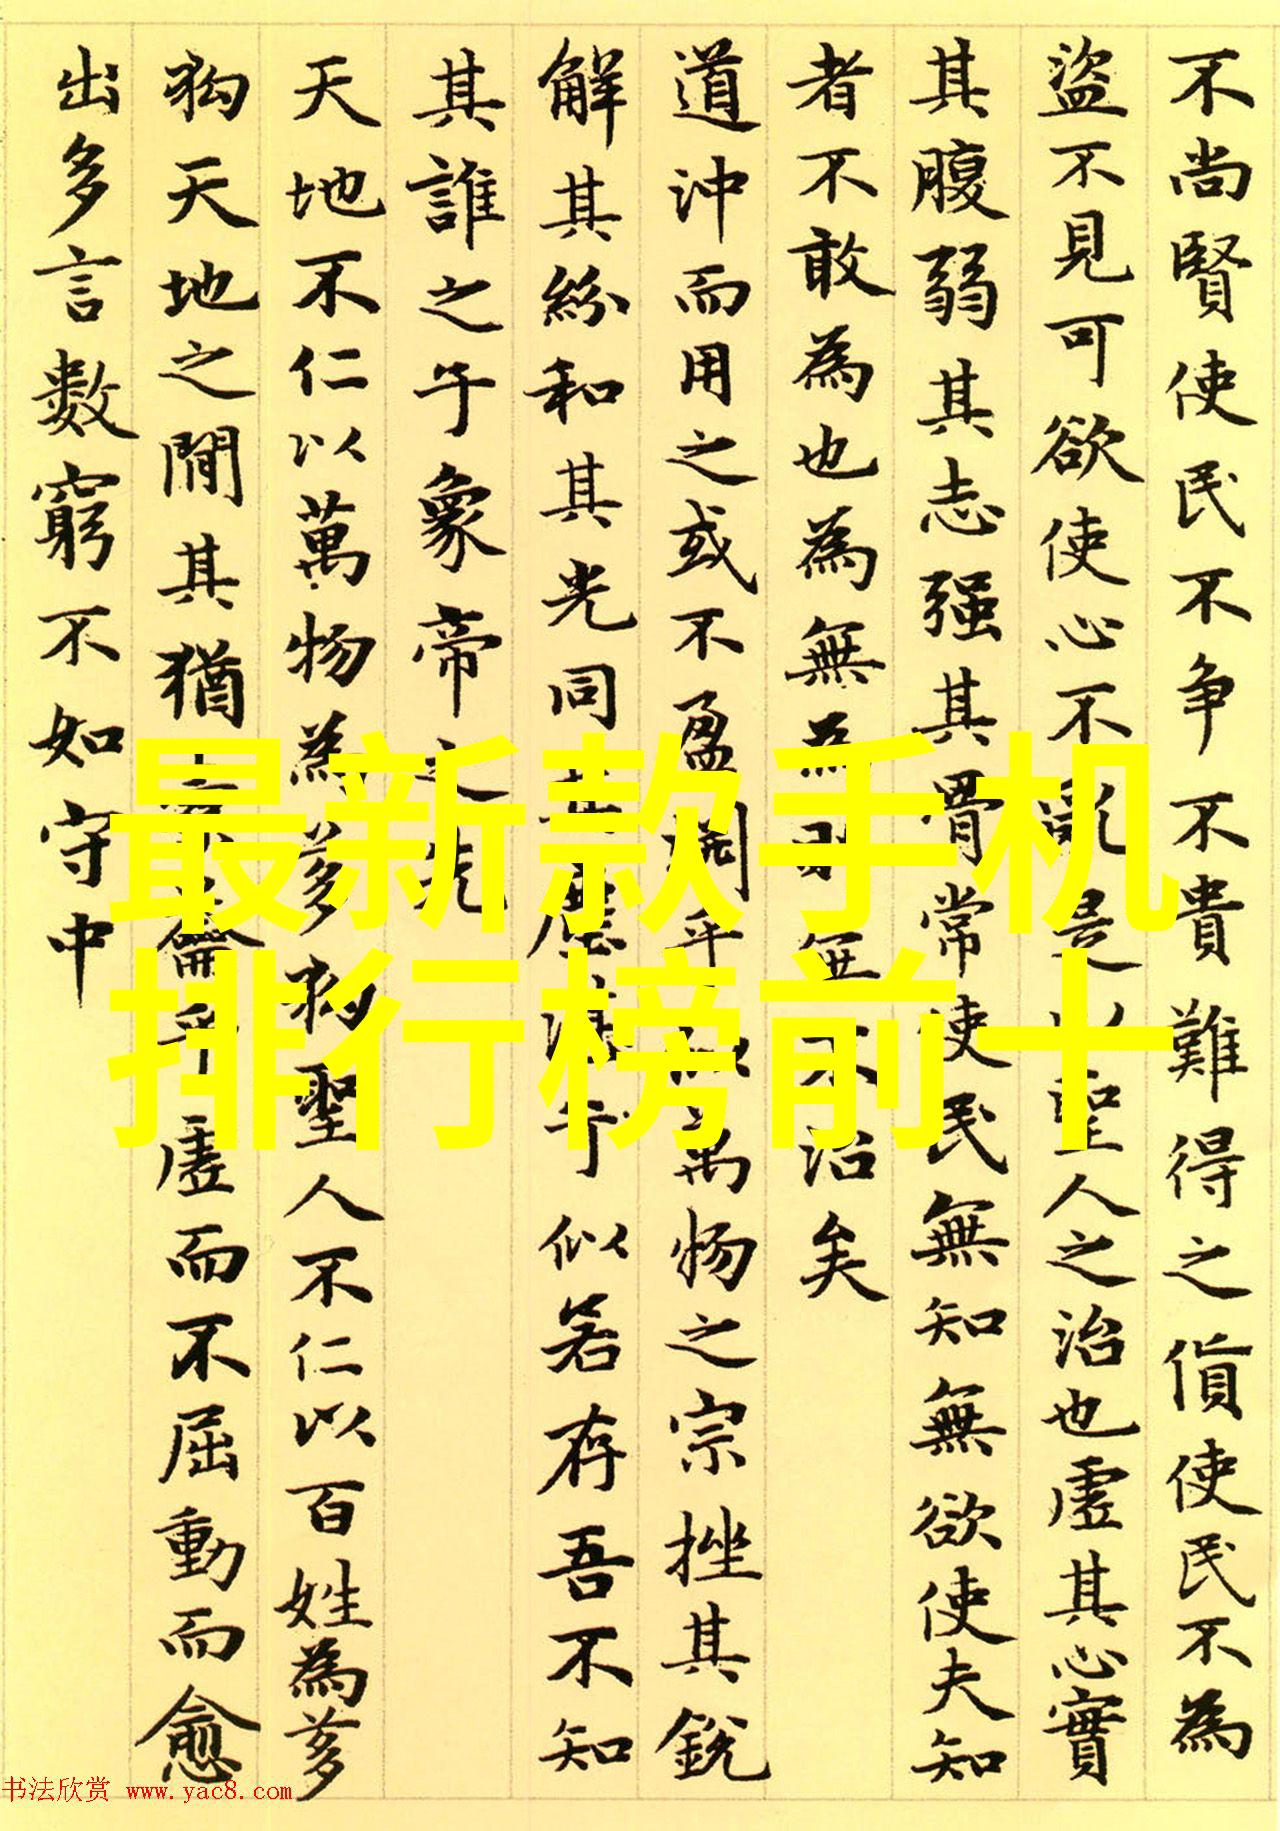 不尚賢使民不争不貴難得之貨使民不為
盜不見可欲使心不亂是以聖人之治也虛其心實
其腹弱其志强其骨常使民無知無欲使夫知
者不敢為也為無為則無不治矣
道沖而用之或不盈淵乎似萬物之宗挫其銳
解其紛和其光同其塵湛乎似若存吾不知
其誰之子象帝之先
天地不仁以萬物為芻狗聖人不仁以百姓為芻
狗天地之間其猶橐籥乎虛而不屈動而愈
出多言數窮不如守中
最新款手机
排行榜前十
书法欣赏 www.yac8.com